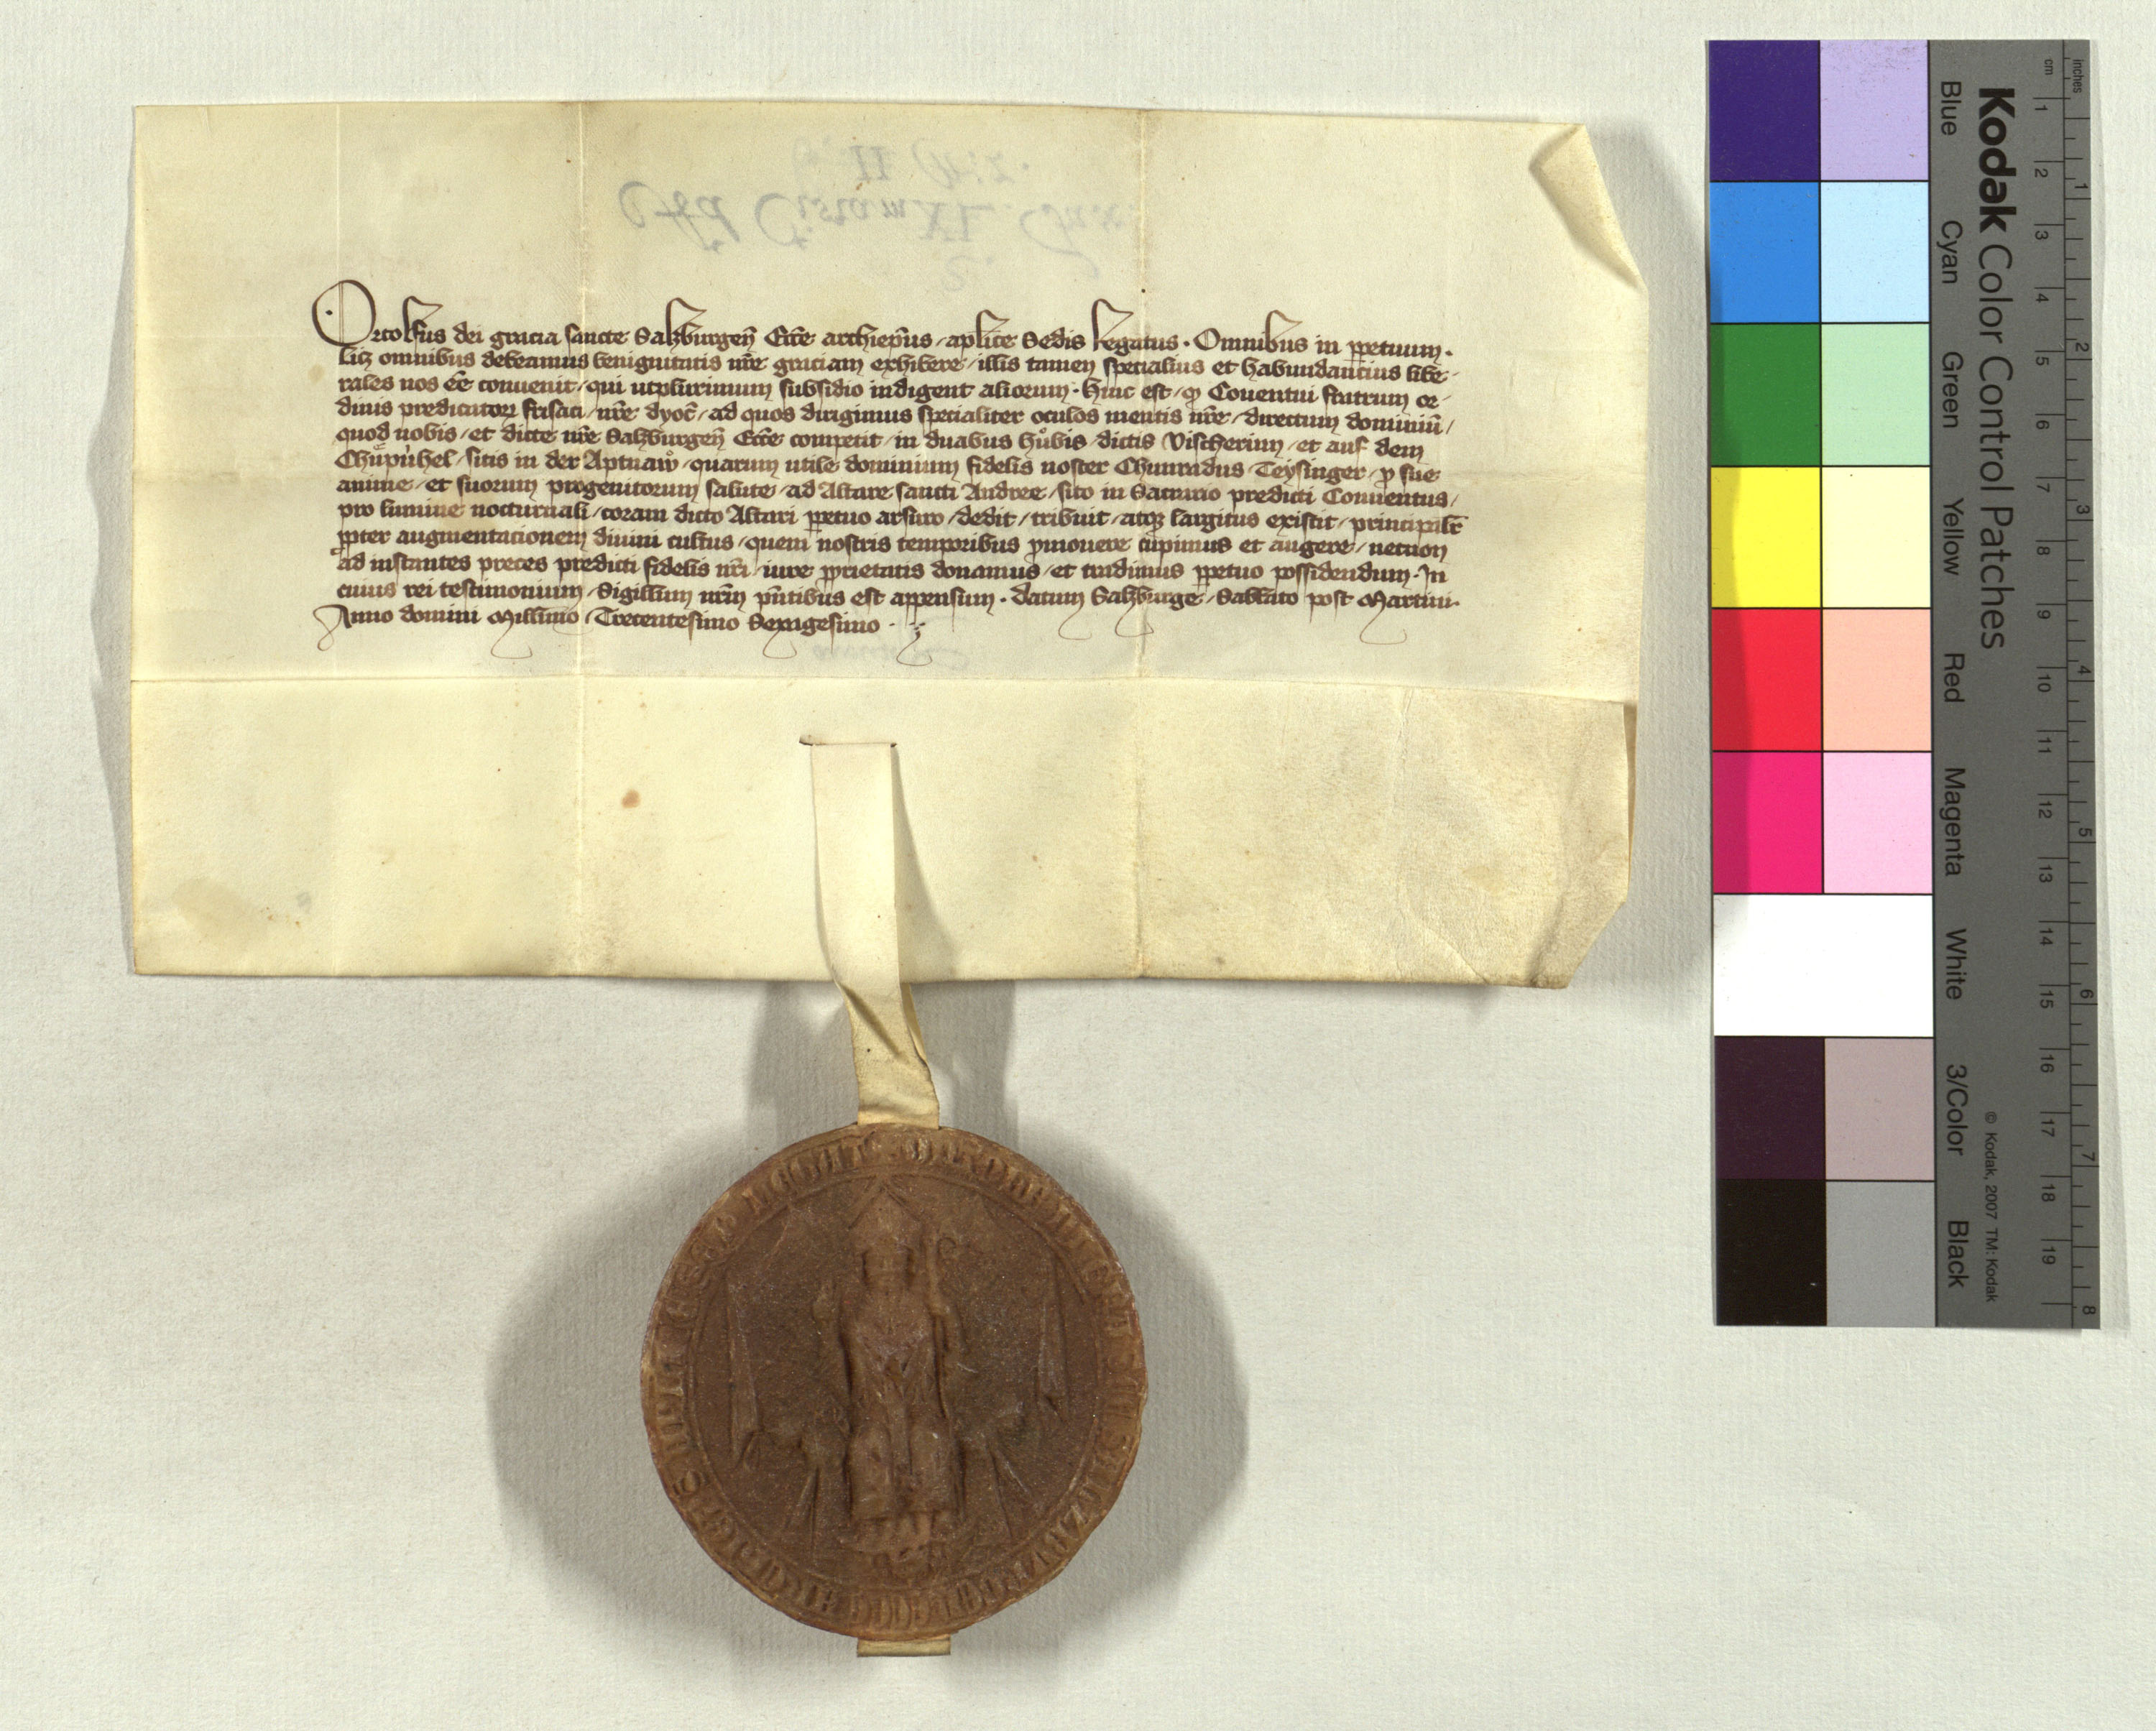 Ortolfus dei gracia sancte Salzburgen̄ Eccē archiepūs / aplice Sedis Legatus · Omnibus in ꝑpetuum ·
Licꝫ omnibus debeamus benignitatis nr̄e graciam exhibere / illis tamen specialius et habundancius libe-
rales nos eē conuenit / qui utplurimum subsidio indigent aliorum · Hinc est / ꝙ Conuentui fratrum or-
dinis predicatorū frisaci / nr̄e dyoc̄ / ad quos dirigimus specialiter oculos mentis nr̄e / directum dominiū /
quod nobis / et dicte nr̄e Salzburgen̄ Eccē competit / in duabus Hůbis / dictis Vischerinn / et auf dem
Chůpuͤhel / sitis in der Aptnaẘ / quarum utile dominium fidelis noster Chunradus / Teysinger / ꝓ sue
anime / et suorum progenitorum salute / ad Altare sancti Andree / sito in Sacrario predicti Conuentus /
pro lumine nocturnali / coram dicto Altari ꝑpetuo arsuro / dedit / tribuit / atqꝫ largitus existit / principalr̄
ꝓpter augmentacionem diuini cultus / quem nostris temporibus ꝓmouere cupimus et augere / necnon
ad instantes preces predicti fidelis nr̄i / iure ꝓprietatis donamus / et tradimus ꝑpetuo possidendum · In
cuius rei testimonium / Sigillum nr̄m pn̄tibus est appensum · datum Salzburge / Sabbato post Martini ·
Anno domini Millimo / Trecentesimo Sexagesimo ·
Kodak Color Control Patches
Blue Cyan Green Yellow Red Magenta White 3/Color Black
© Kodak, 2007 TM: Kodak
cm 1 2 3 4 5 6 7 8 9 10 11 12 13 14 15 16 17 18 19
inches 1 2 3 4 5 6 7 8